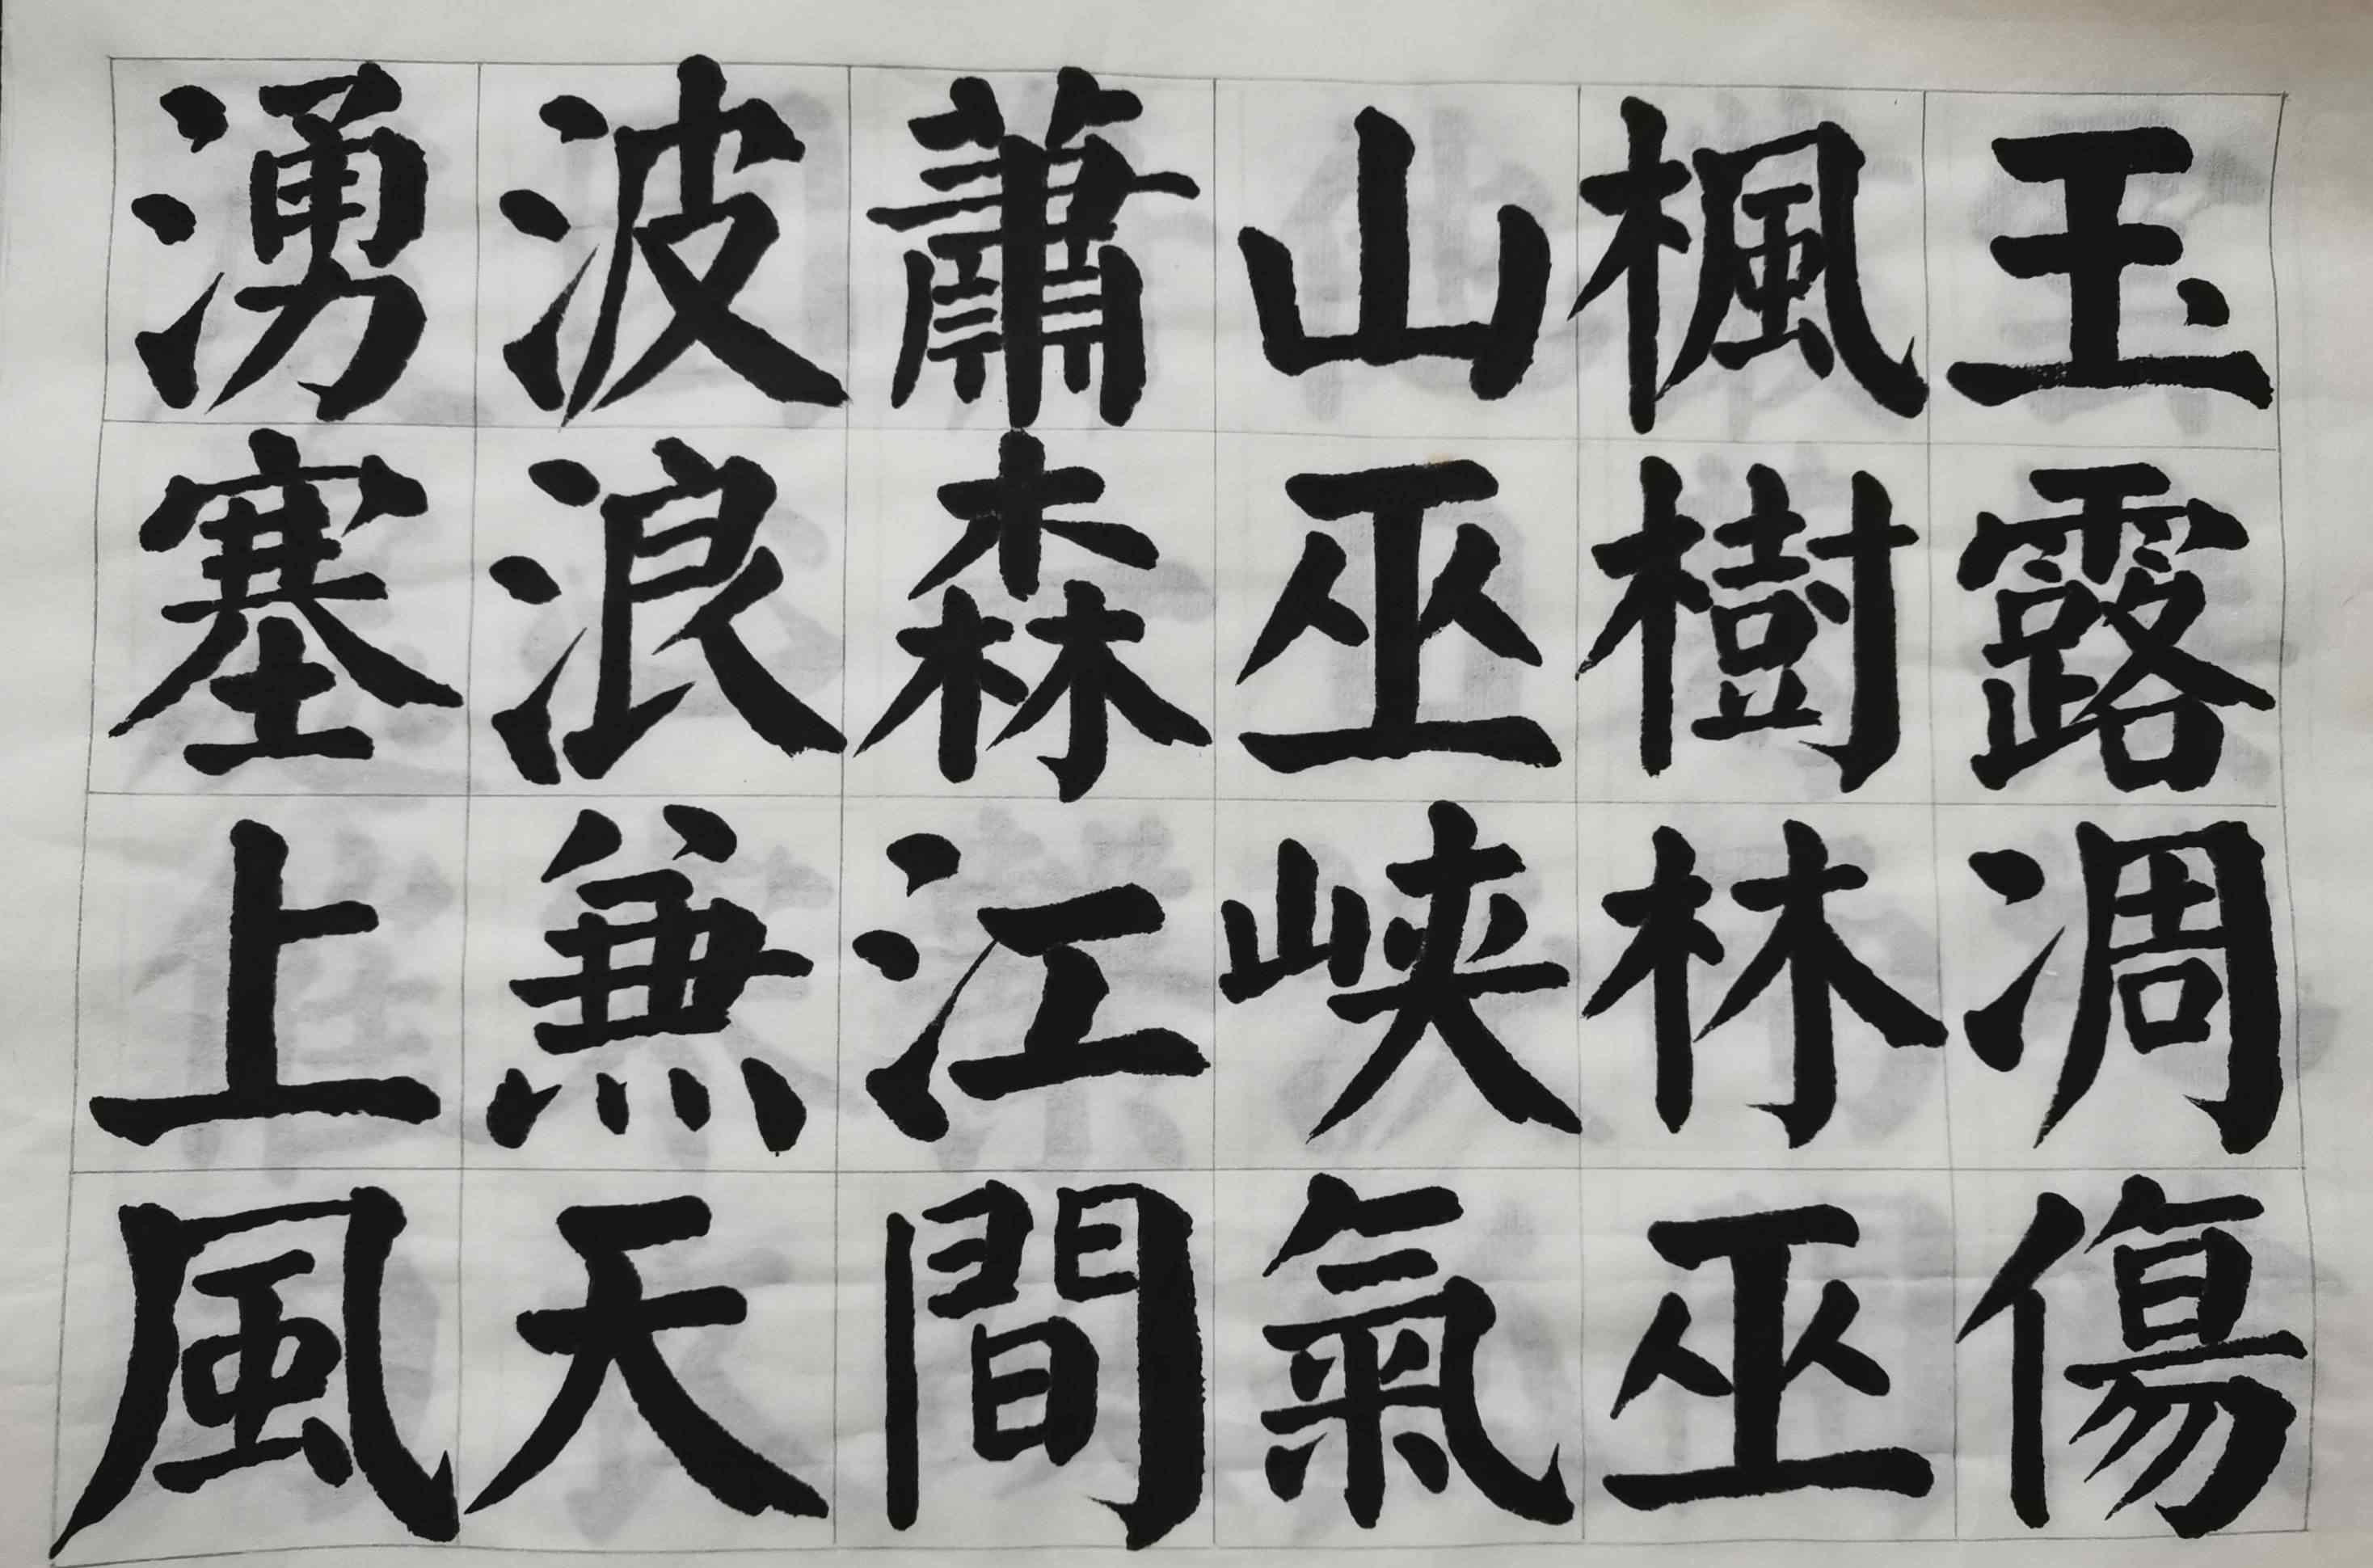 玉露凋傷
楓樹林巫
山巫峽氣
蕭森江間
波浪兼天
湧塞上風